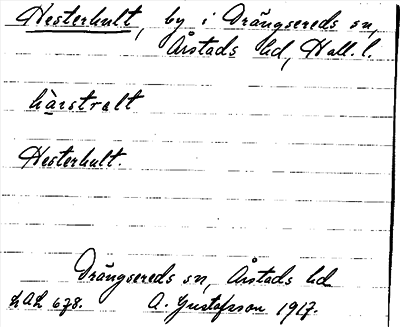 Hesterhult, by i Drängsereds sn,
Årstads hd, Hall. l.
hæstralt
Hesterhult.
Drängsereds sn, Årstads hd
LAL 678. A. Gustafsson 1917.